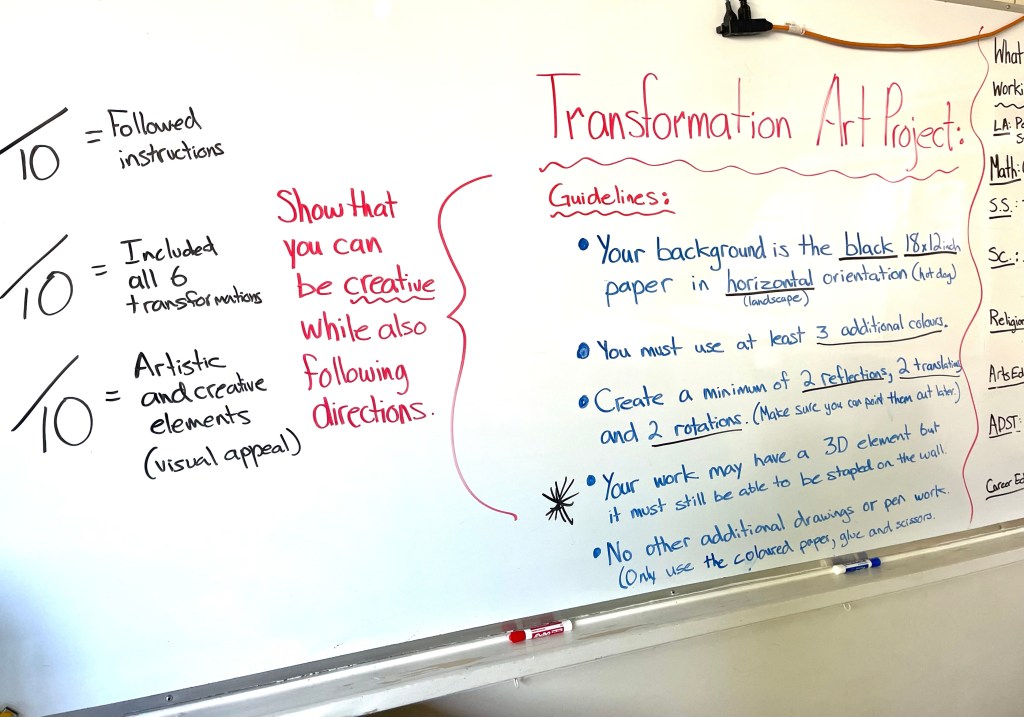 /10 = Followed
instructions
/10 = Included
all 6
transformations
/10 = Artistic
and creative
elements
(visual appeal)
Show that
you can
be creative
while also
following
directions.
Transformation Art Project:
Guidelines:
• Your background is the black 18x12inch
paper in horizontal orientation (hot dog)
(landscape)
• You must use at least 3 additional colours.
• Create a minimum of 2 reflections, 2 translations
and 2 rotations. (Make sure you can point them out later.)
• Your work may have a 3D element but
it must still be able to be stapled on the wall.
• No other additional drawings or pen work.
(Only use the coloured paper, glue and scissors.
What
Worki
LA: Po
S
Math:
S.S.:
Sc.:
Religion
Arts Ed
ADST:
Career Ed